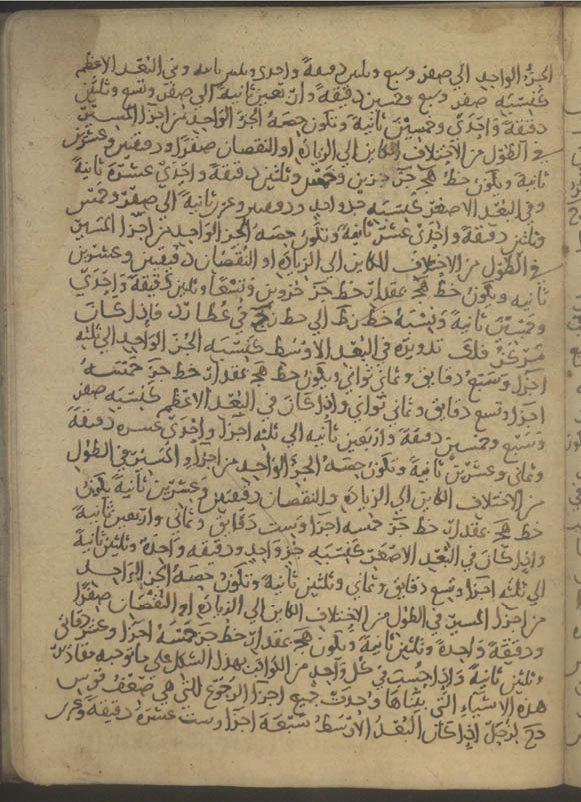 الجزء الواحد الى صفر وسبع وثلثين دقيقة واحدى وثلثين ثانية وفى البعد الاعظم
كنسبه صفر وسبع وخمسين دقيقة واربعين ثانية الى صفر وتسع وثلثين
دقيقة واحدى وخمسين ثانية وتكون حصة الجزء الواحد من اجزا المسير
فى الطول من الاختلاف الكاين الى الزيادة او النقصان صفرا ودقيقتين وعشرين
ثانية ويكون خط جزءين وخمس وثلثين دقيقة واحدى عشرة ثانية
وفى البعد الاصغر كنسبه جزء واحد ودقيقتين ثانية الى صفر وخمس
وثلثين دقيقة واحدى عشرة ثانية وتكون حصة الجزء الواحد من اجزا المسير
فى الطول من الاختلاف الكاين الى الزيادة او النقصان دقيقتين وعشرين
ثانيه ويكون خط بمقدار خط جزوين وتسعا وثلثين دقيقة واحدى
وخمسين ثانية ونسبة خط الى خط فى عطارد فاذا كان
مركز فلك تدويره فى البعد الاوسط كنسبه الجزء الواحد الى ثلثه
اجزا وتسع دقايق وثمانى ثوانى ويكون خط بمقدار خط خمسه
اجزا وتسع دقايق وثمانى ثوانى واذا كان فى البعد الاعظم كنسبه صفر
وسبع وخمسين دقيقة واربعين ثانيه الى ثلثه اجزا واحدى عشره دقيقة
وثمانى وعشرين ثانية وتكون حصة الجزء الواحد من اجزا المسير فى الطول
من الاختلاف الكاين الى الزيادة والنقصان دقيقتين وعشرين ثانية يكون
خط بمقدار خط خمسه اجزا وست دقايق وثمانى واربعين ثانية
واذا كان فى البعد الاصغر كنسبه جزء واحد ودقيقه واحدة وثلثين ثانية
الى ثلثه اجزا وتسع دقايق وثمانى وثلثين ثانية وتكون حصة الجزء الواحد
من اجزا المسير فى الطول من الاختلاف الكاين الى الزيادة او النقصان صفرا
ودقيقة واحدة وثلثين ثانية ويكون بمقدار خط خمسة اجزا وعشر دقايق
وثلثين ثانية واذا حسبت فى كل واحد من الكواكب بهذا الشكل على ما توجبه مقادير
هذه الاشياء التى بيناها وجدت جميع اجزا الرجوع التى هى ضعف قوس
لزحل اذا كان البعد الاوسط سبعة اجزا وست عشرة دقيقة